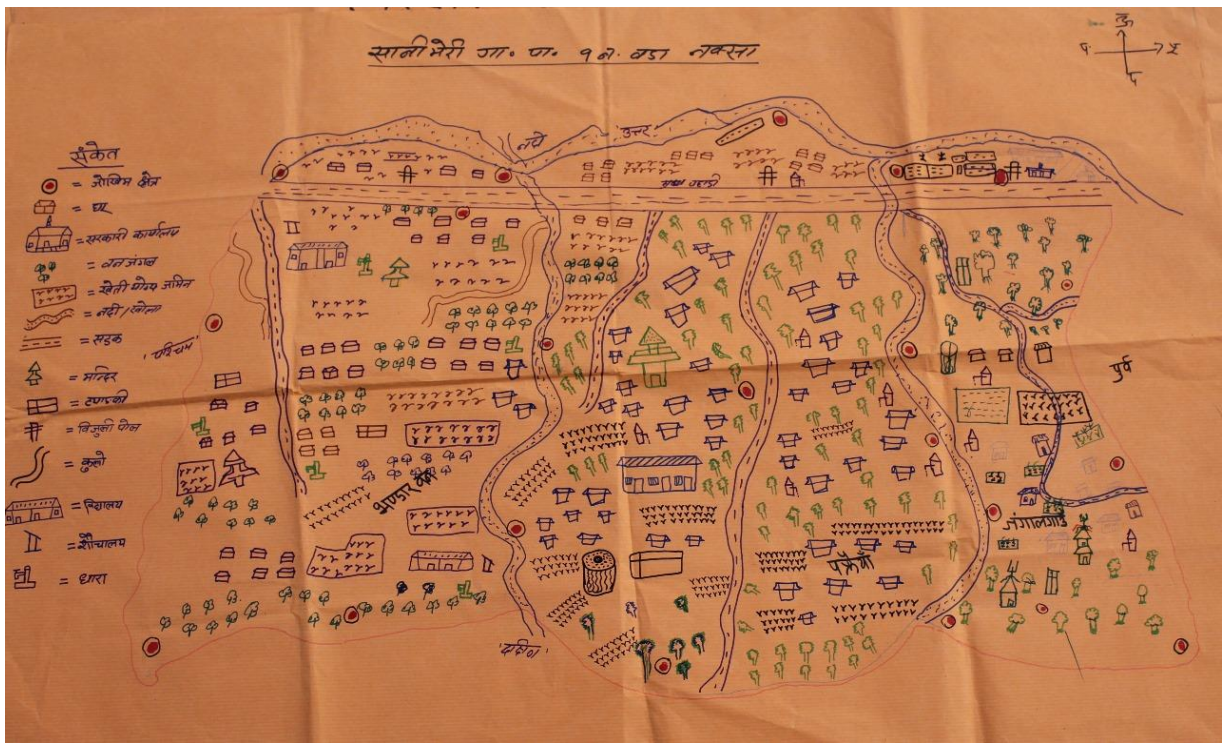 सानीभेरी गा. पा. १ नं. वडा नक्सा
उ
प
पू
द
संकेत
= जोखिम क्षेत्र
= घर
= सरकारी कार्यालय
= वन जंगल
= खेती योग्य जमिन
= नदी / खोला
= सडक
= मन्दिर
= ट्याङ्की
= बिजुली पोल
= कुलो
= विद्यालय
= शौचालय
= धारा
उत्तर
मध्य पहाडी
'पश्चिम'
पुर्व
'दक्षिण'